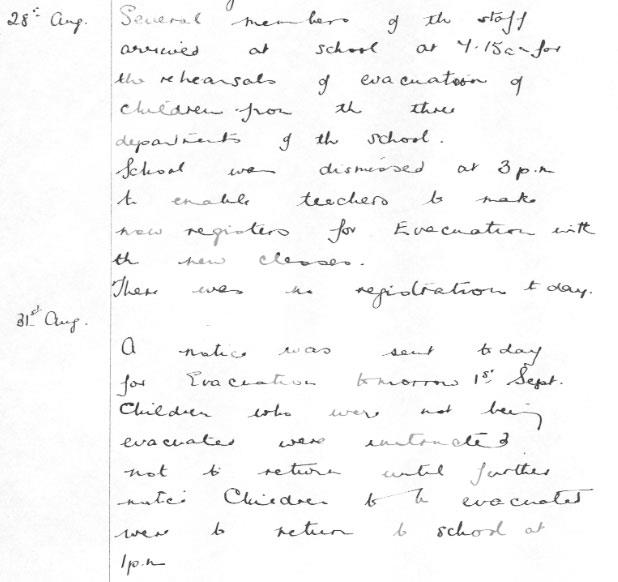 28th Aug. Several members of the staff
arrived at school at 7.15am for
the rehearsals of evacuation of
children from the three
departments of the school.
School was dismissed at 3 p.m
to enable teachers to make
new registers for Evacuation with
the new classes.
There was no registration today.
31st Aug.
A notice was sent today
for Evacuation tomorrow 1st Sept.
Children who were not being
evacuated were instructed
not to return until further
notice Children to be evacuated
were to return to school at
1 p.m